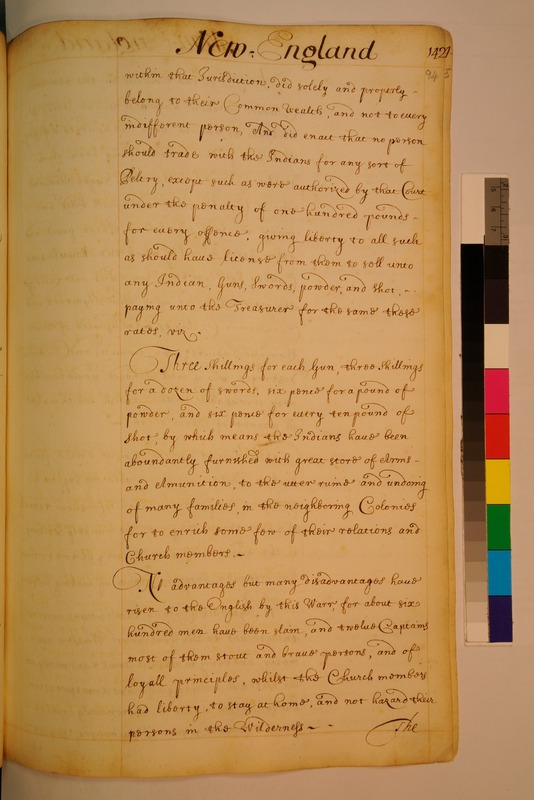 New-England
1421
94 5
within that Jurisdiction, did solely and properly -
belong to their Common Wealth, and not to every
indifferent person, And did enact that no person
should trade with the Indians for any sort of
Peltry, except such as were authorized by that Court
under the penalty of one hundred pounds -
for every offence, giving liberty to all such
as should have license from them to sell unto
any Indian, Guns, Swords, powder, and shot, -
paying unto the Treasurer for the same these
rates, viz.
Three shillings for each Gun, three shillings
for a dozen of swords, six pence for a pound of
powder, and six pence for every ten pound of
shot; by which means the Indians have been
aboundantly furnished with great store of Arms -
and Amunition, to the utter ruine and undoing
of many families, in the neighbering Colonies
for to enrich some few of their relations and
Church members. -
No advantages but many disadvantages have
risen to the English by this Warr, for about six
hundred men have been slain, and twelve Captains
most of them stout and brave persons, and of
loyall principles, whilst the Church members
had liberty, to stay at home, and not hazard their
persons in the Wilderness - -
The